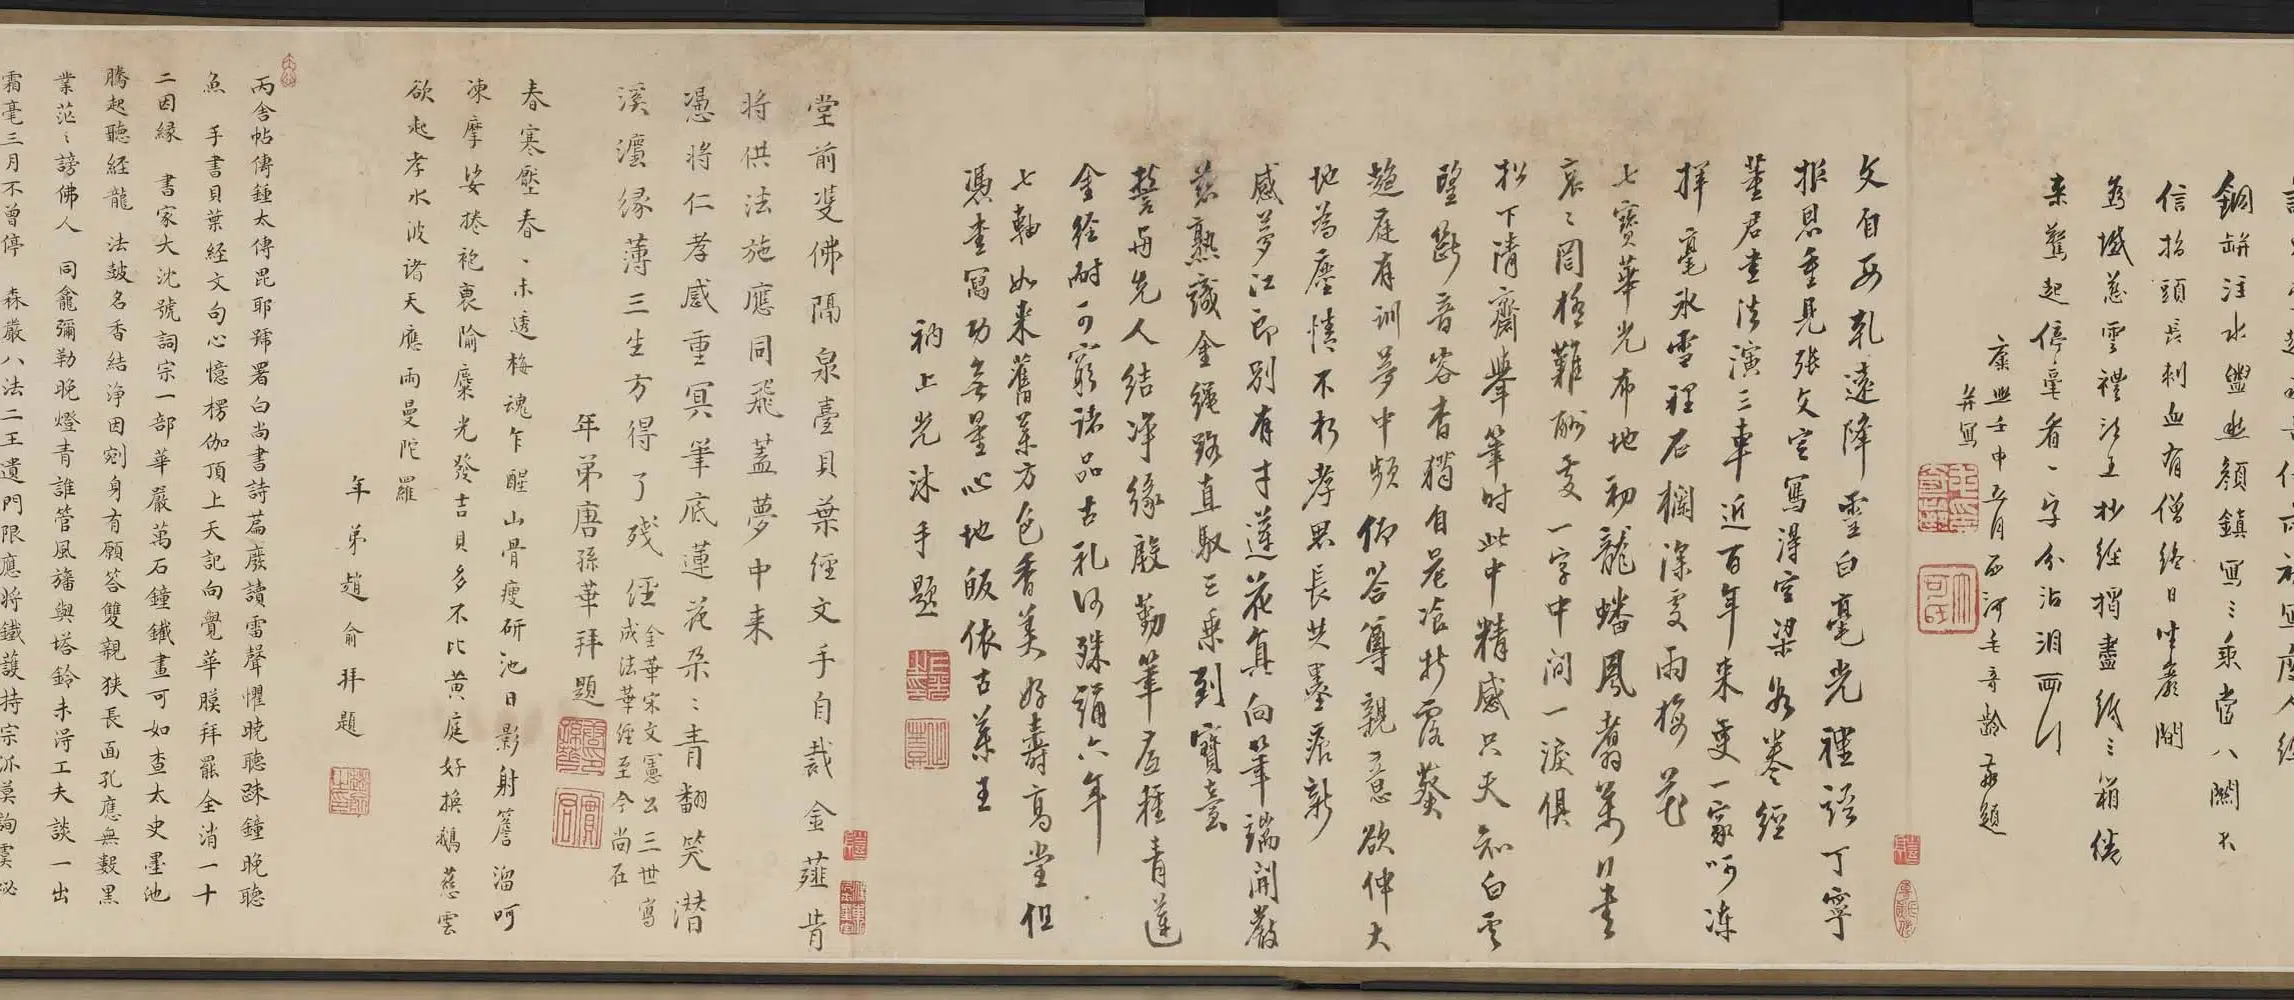 銅缾注水盥與顏鎮寫三乘當八關大
信指頭長刺血有僧終日坐嚴關
慈雲禮法王抄經揩盡紙三箱倦
來驚起停毫看一字分沾淚兩行
康熙壬申五月西河毛奇齡敬題
并寫
文自西乾遠降靈白毫光裡語丁寧
報恩重見張文定寫得空梁兩卷經
董君書法演三車近百年來更一家呵凍
揮毫冰雪裡石欄深處雨梅花
七寶華光布地初龍蟠鳳翥萬行書
哀哀罔極難酬處一字中間一淚俱
松下清齋舉筆時此中精感只天知白雲
望斷音容杳猶自花飡折露葵
趨庭有訓夢中頻仰答尊親意欲伸大
地為塵情不朽孝思長共墨痕新
感夢江郎別有才蓮花真向筆端開嚴
慈熟識金繩路直馭三乘到寶臺
誓與先人結淨緣殷勤筆底種青蓮
金經耐可窮諸品古礼何殊誦六年
七軸如來舊業方色香美好壽高堂但
憑書寫功無量心地皈依古藥王
衲上光沐手題
堂前雙佛隔泉臺貝葉經文手自裁金薤肯
將供法施應同飛蓋夢中來
憑將仁孝感重冥筆底蓮花朵朵青翻笑潛
溪濃緣薄三生方得了殘經 金華宋文憲公三世寫
成法華經至今尚在
年弟唐孫華拜題
春寒壓春春未透梅魂乍醒山骨瘦研池日影射簷溜呵
凍摩娑捲袍裏隃麋光發吉貝多不比黃庭好換鵝慈雲
欲起孝水波諸天應雨曼陀羅
年弟趙俞拜題
丙舍帖傳鍾太傅毘耶號署白尚書詩篇廢讀雷聲懼曉聽疎鐘晚聽
魚 手書貝葉經文句心憶楞伽頂上天記向覺華膜拜罷全消一十
二因緣 書家大沈號詞宗一部華嚴萬石鐘鐵畫可如查太史墨池
騰起聽經龍 法鼓名香結淨因剜身有願答雙親狹長面孔應無數黑
業茫茫謗佛人 同龕彌勒晚燈青誰管風旛與塔鈴未得工夫談一出
霜毫三月不曾停 森嚴八法二王遺門限應將鐵護持宗派莫詢虞祕